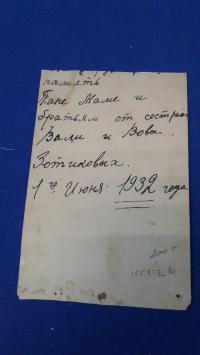 память
Папе Маме и
братьям от сестры
Вали и Вовы
Зотиковых.
1го Июня 1932 года
200-